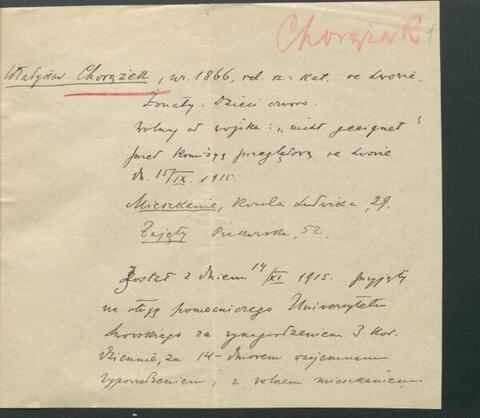 Chorążek 1
Władysław Chorążek, ur. 1866, rel. rz.-kat. we Lwowie.
Żonaty. Dzieci czworo.
Wolny od wojska: „nicht geeignet"
przed Komisyą przeglądową we Lwowie
dn. 15/IX. 1915.
Mieszkanie, Karola Ludwika, 29.
Zajęty Piekarska, 52.
Został z dniem 14/XI 1915. przyjęty
na sługę pomocniczego Uniwersytetu
lwowskiego za wynagrodzeniem 3 Kor.
dziennie, za 14-dniowem wzajemnem
wypowiedzeniem, z wolnem mieszkaniem.